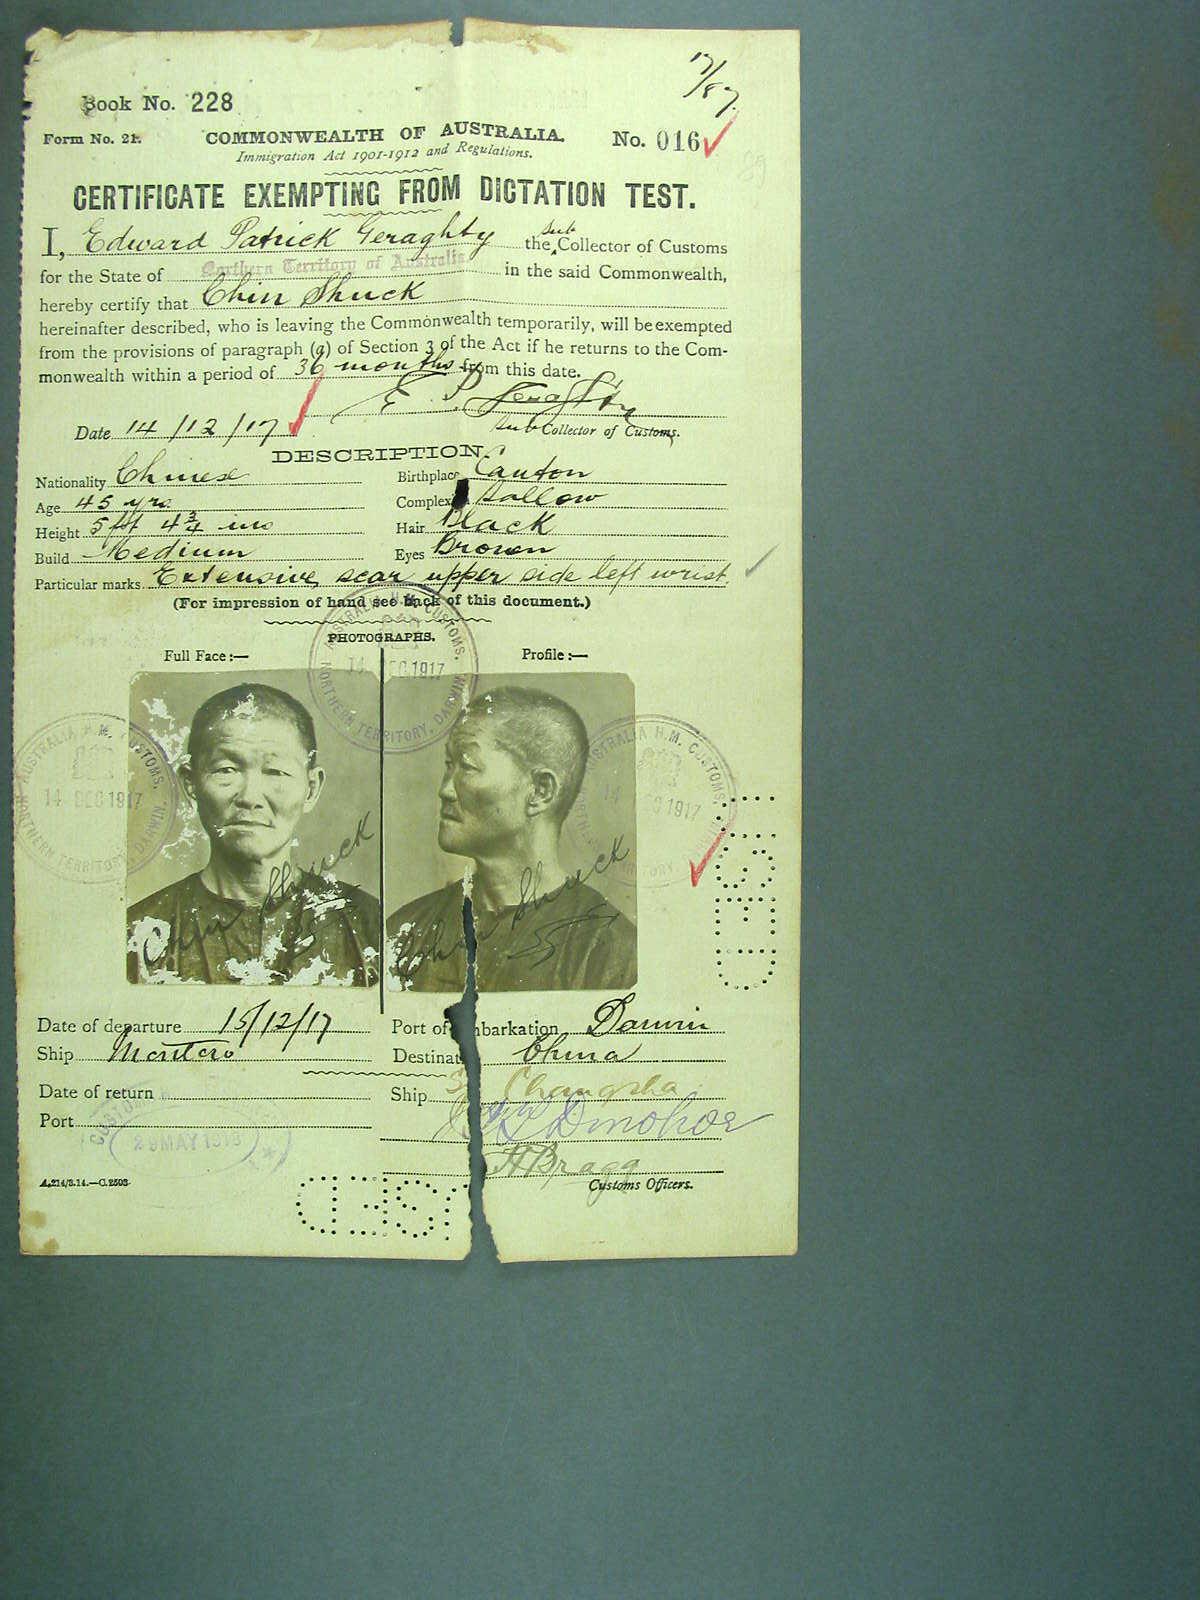 17/87
Book No. 228
Form No. 21.
COMMONWEALTH OF AUSTRALIA.
No. 016
Immigration Act 1901-1912 and Regulations.
89
CERTIFICATE EXEMPTING FROM DICTATION TEST.
I, Edward Patrick Geraghty the Sub Collector of Customs
for the State of Northern Territory of Australia in the said Commonwealth,
hereby certify that Chin Shuck
hereinafter described, who is leaving the Commonwealth temporarily, will be exempted
from the provisions of paragraph (a) of Section 3 of the Act if he returns to the Com-
monwealth within a period of 36 months from this date.
E P Geraghty
Date 14/12/17
Sub Collector of Customs.
DESCRIPTION.
Nationality Chinese Birthplace Canton
Age 45 yrs Complex Sallow
Height 5 ft 4 3/4 ins Hair Black
Build Medium Eyes Brown
Particular marks Extensive scar upper side left wrist
(For impression of hand see back of this document.)
PHOTOGRAPHS.
Full Face :— Profile :—
AUSTRALIA H.M. CUSTOMS.
14 DEC 1917
NORTHERN TERRITORY, DARWIN.
AUSTRALIA H.M. CUSTOMS.
14 DEC 1917
NORTHERN TERRITORY, DARWIN.
AUSTRALIA H.M. CUSTOMS,
14 DEC 1917
Chin Shuck
Chin Shuck
Date of departure 15/12/17 Port of mbarkation Darwin
Ship Montoro Destinat China
Date of return Ship Changsha
Port
CUSTOM
29 MAY 1918
Donohoe
H Bragg
A.214/3.14.—C.2503. Customs Officers.